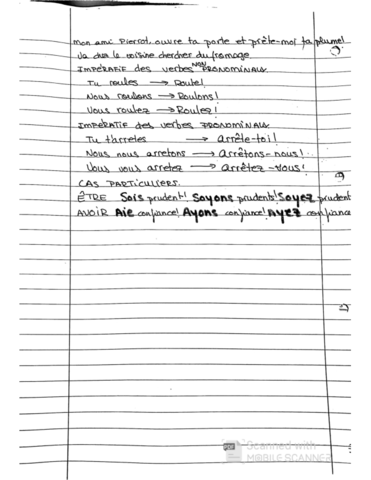 mon ami Pierrot, ouvre ta porte et prête-moi ta plume!
Va chez le voisine chercher du fromage
IMPÉRATIF des verbes NON PRONOMINAUX
Tu roules → Roule!
Nous roulons → Roulons!
Vous roulez → Roulez!
IMPÉRATIF des verbes PRONOMINAUX
Tu t'arretes → arrête-toi!
Nous nous arretons → Arrêtons-nous!
Vous vous arretez → Arrêtez-vous!
CAS PARTICULIERS.
ÊTRE Sois prudent! Soyons prudents! Soyez prudent
AVOIR Aie confiance! Ayons confiance! Ayez confiance
PDF Scanned with
MOBILE SCANNER